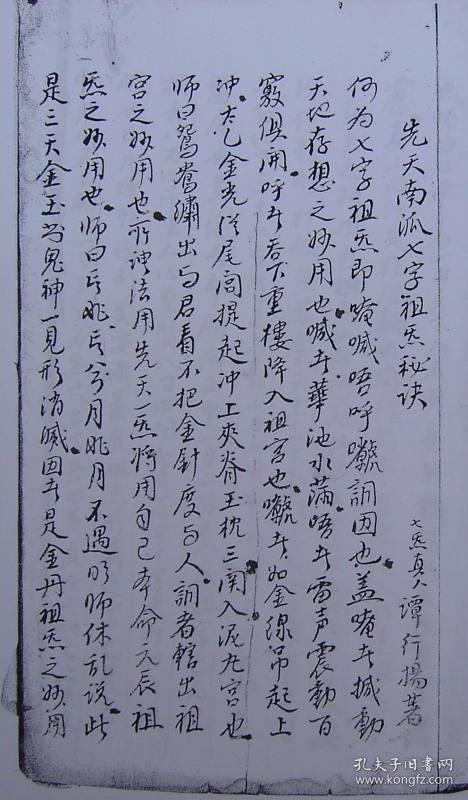 先天南派七字祖炁秘诀
七炁真人譚行揚著
何为七字祖炁即唵嘁唔呼囐詷因也盖唵者撼動
天地存想之妙用也嘁者華池水滿唔者雷声震動百
竅俱開呼者吞下重樓降入祖宫也者如金線吊起上
冲太乙金光從尾闾提起冲上夾脊玉枕三関入泥丸宫也
師曰鴛鴦繡出与君看不把金針度与人詷者轄出祖
宫之妙用也所謂法用先天一炁將用自己本命元辰祖
炁之妙用也師曰兆兮月兆月不遇明師休乱说此
是三天金玉为鬼神一見形消滅因者是金丹祖炁之妙用
孔夫子旧書网
www.kongfz.com